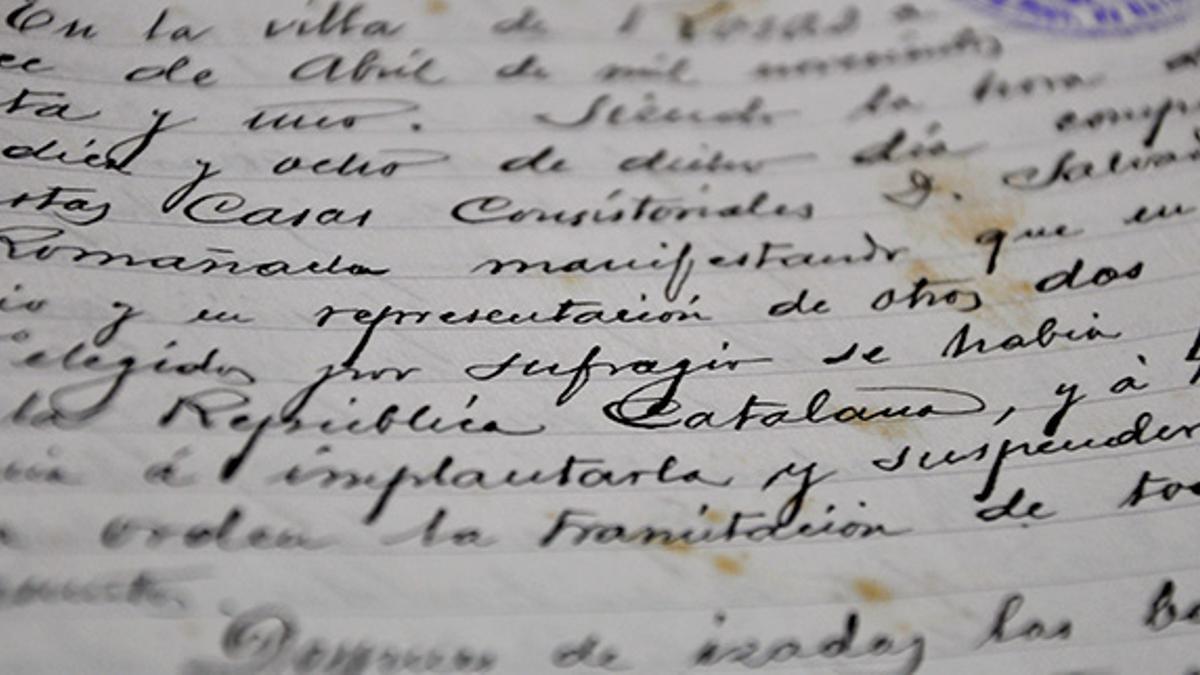 En la villa de Rosas a
de Abril de mil novecientos
ta y uno. Siendo la hora
diez y ocho de dicho día comp
stas Casas Consistoriales D. Salva
Romañach manifestando que en
io y en representación de otros dos
elegidos por sufragio se había
la República Catalana, y á
á implantarla y suspender
orden la tramitación de to
Después de izadas las ba